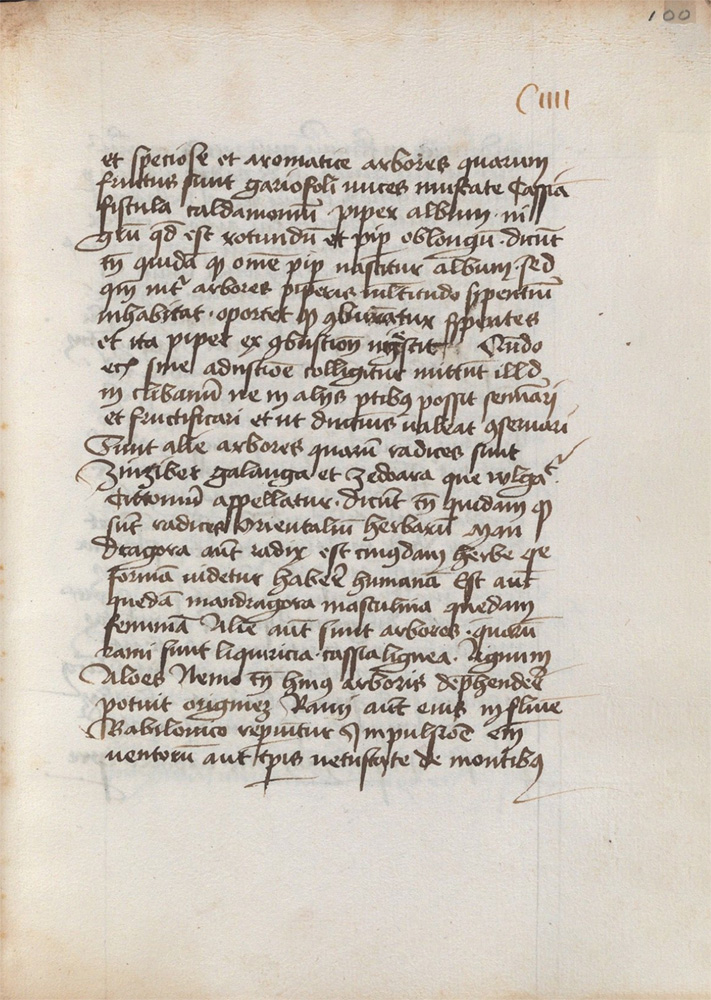 100
Ciiii
et speciose et aromatice arbores quarum
fructus sunt gariofoli nuces muscate Cassia
fistula caldamomū piper album · ni
grū qd est rotundū et pip oblongū · dicūt
tn̄ quidā ꝙ omē pip nascitur album · sed
qm̄ int̄ arbores piperis multitudo sꝑentiū
inhabitat · oportet ꝙ ꝯburātur sꝑentes
et ita piper ex ꝯbustion nascit Nūdo
sine adustiōe colligitur mittūt ill'd
in clibanū ne in alijs ꝑtibꝫ possit seminari
et fructificari et ut diucius ualeat ꝯseruari
Sunt alie arbores quarū radices sunt
Zinziber galanga et zedoara que wlgar̄
Cittouuū appellatur · dicūt tn̄ quedam ꝙ
sūt radices Orientaliū herbarū Man
dragora aūt radix est cuiꝯdam herbe qe
formā uidetur haber̄ humanā Est aūt
quedā mandragora masculina quedam
feminīa Alie aūt sunt arbores · quorū
rami sunt liquiricia · cassialignea · Lignum
Aloes Nemo tn̄ huiꝯ arboris deph̄ender̄
potuit originez Rami aūt eius in fluuīe
Babilonico reꝑiūtur Impulsiōe em̄
uentorū aut tꝑis uetustate de montibꝫ